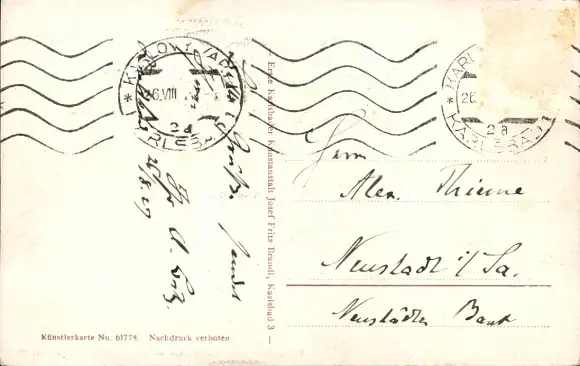 KARLOVY VARY
26.VIII
2a
KARLSBAD
Gruß
sendet
26/8.29
Erste Karlsbader Kunstanstalt Josef Fritz Brandl, Karlsbad 3
KARL
26.
2a
KARLSBAD
Herrn
Alex. Thieme
Neustadt i/Sa.
Neustädter Bank
Künstlerkarte No. 61778. Nachdruck verboten